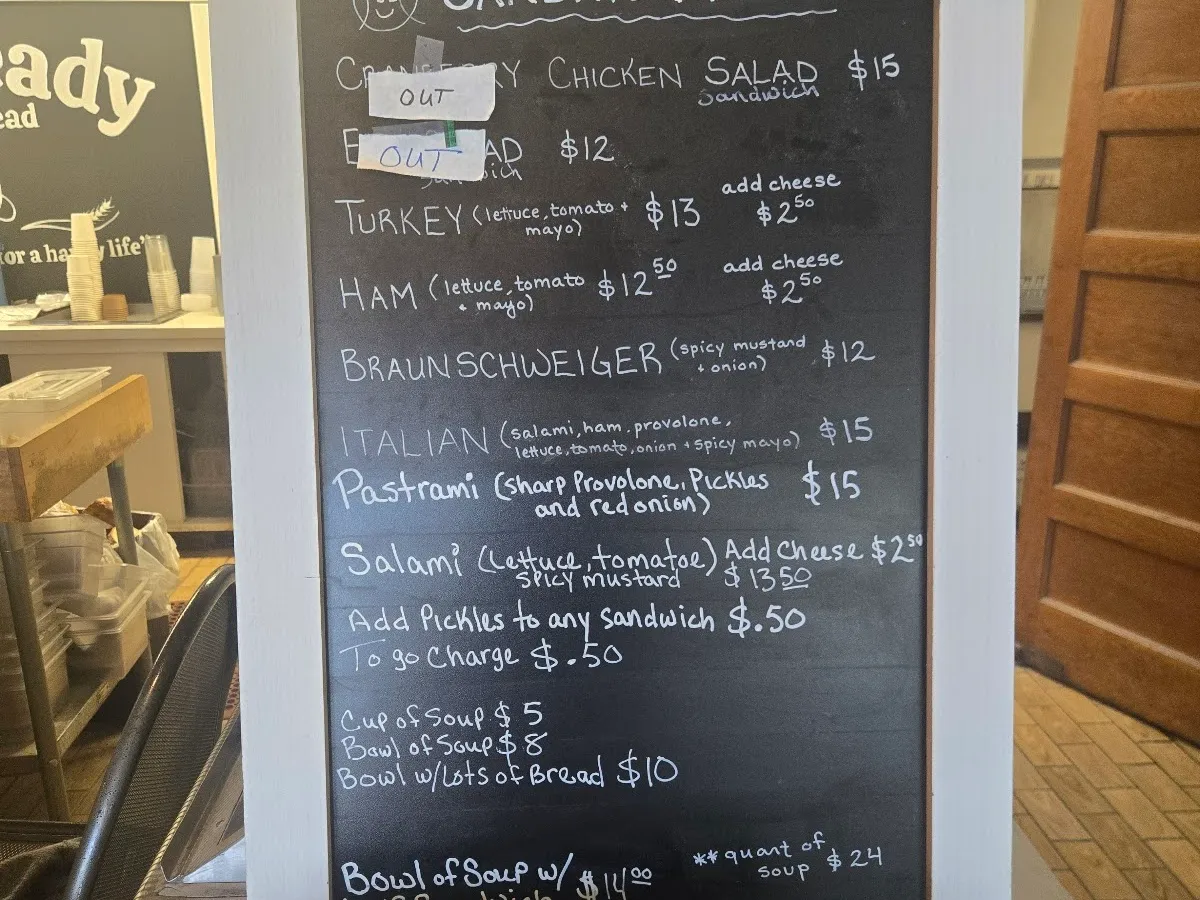 eady
ead
for a ha y life"
CRANBERRY CHICKEN SALAD $15
sandwich
OUT
OUT
AD $12
TURKEY (lettuce, tomato + mayo) $13 add cheese $2⁵⁰
HAM (lettuce, tomato + mayo) $12⁵⁰ add cheese $2⁵⁰
BRAUNSCHWEIGER (spicy mustard + onion) $12
ITALIAN (salami, ham, provolone, $15
lettuce, tomato, onion + spicy mayo)
Pastrami (sharp Provolone, Pickles $15
and red onion)
Salami (Lettuce, tomatoe) Add Cheese $2⁵⁰
spicy mustard $13⁵⁰
Add Pickles to any sandwich $.50
To go Charge $.50
Cup of Soup $5
Bowl of Soup $8
Bowl w/Lots of Bread $10
Bowl of Soup w/ $14⁰⁰
**quart of soup $24